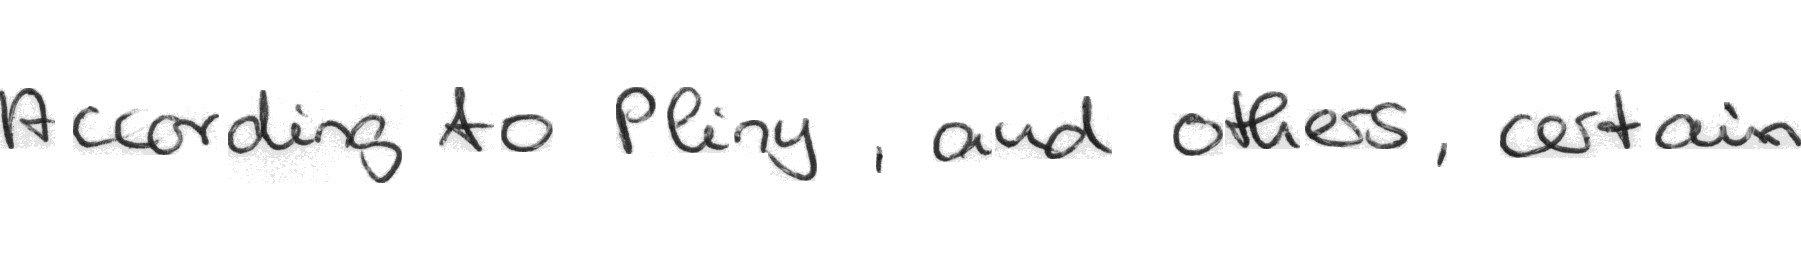 According to Pliny, and others, certain